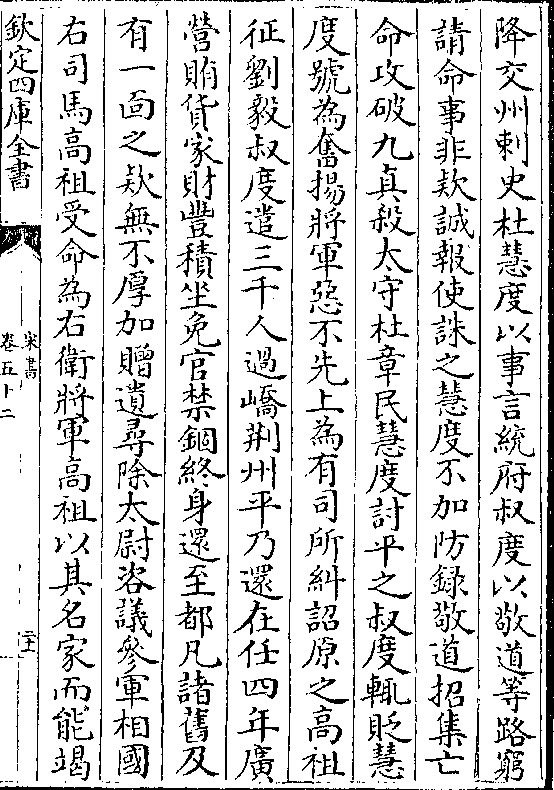 降交州刺史杜慧度以事言統府叔度以敬道等路窮
請命事非欵誠報使誅之慧度不加防録敬道招集亡
命攻破九真殺太守杜章民慧度討平之叔度輒貶慧
度號為奮揚將軍惡不先上為有司所糾詔原之高祖
征劉毅叔度遣三千人過嶠荆州平乃還在任四年廣
營賄貨家財豐積坐免官禁錮終身還至都凡諸舊及
有一面之欵無不厚加贈遺尋除太尉咨議參軍相國
右司馬高祖受命為右衛將軍高祖以其名家而能竭
欽定四庫全書
宋書
卷五十二